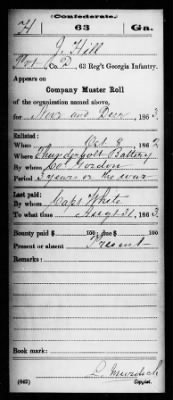 (Confederate.)
H 63 Ga.
J Hill
Pvt, Co. D, 63 Reg't Georgia Infantry.
Appears on
Company Muster Roll
of the organization named above,
for Nov and Dec, 1863
Enlisted:
When Oct 8, 1862
Where Thunderbolt Battery
By whom Col Gordon
Period 3 years or the war
Last paid:
By whom Capt White
To what time Augt 31, 1863.
Bounty paid $ 100; due $ 100
Present or absent Present
Remarks:
Book mark:
(642) Copyist.